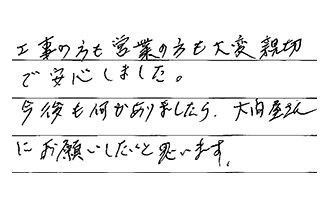 工事の方も営業の方も大変親切
で安心しました。
今後も何かありましたら、大向屋さん
にお願いしたいと思います。